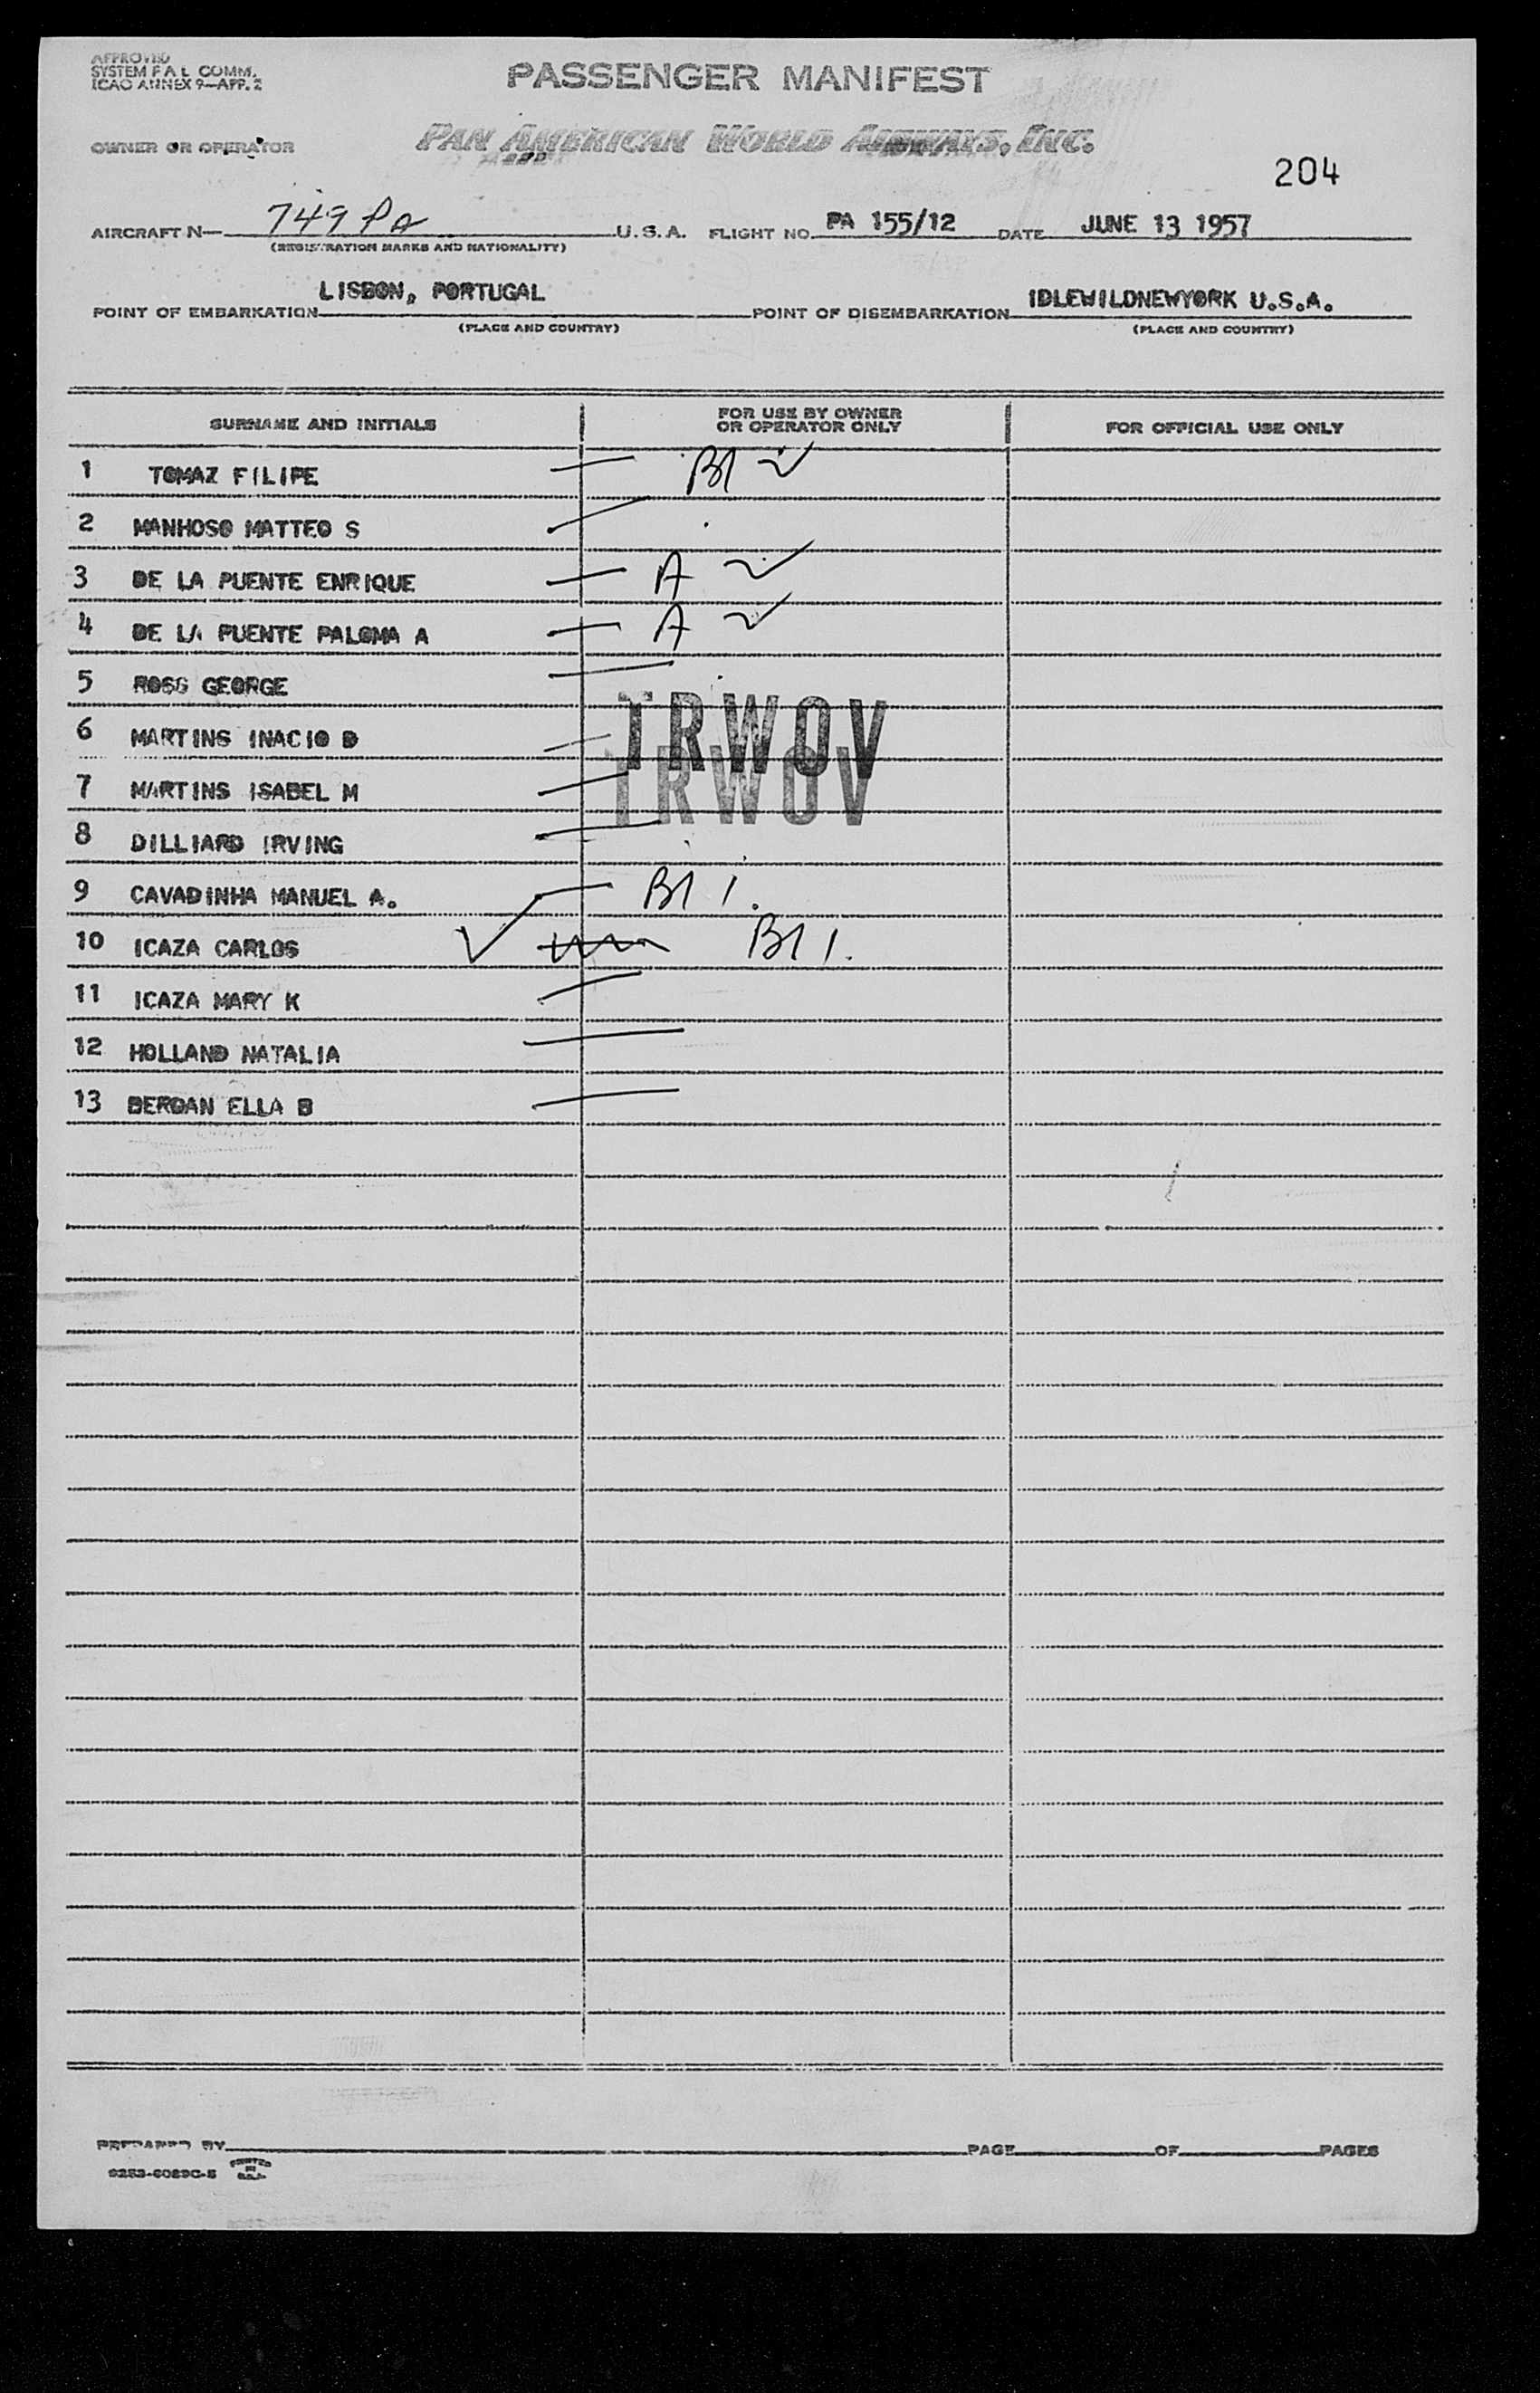 APPROVED
SYSTEM F A L COMM.
ICAO ANNEX 9—APP. 2
PASSENGER MANIFEST
OWNER OR OPERATOR PAN AMERICAN WORLD AIRWAYS, INC.
204
AIRCRAFT N— 749 PA U.S.A. FLIGHT NO. PA 155/12 DATE JUNE 13 1957
(REGISTRATION MARKS AND NATIONALITY)
POINT OF EMBARKATION LISBON, PORTUGAL POINT OF DISEMBARKATION IDLEWILDNEWYORK U.S.A.
(PLACE AND COUNTRY) (PLACE AND COUNTRY)
SURNAME AND INITIALS FOR USE BY OWNER OR OPERATOR ONLY FOR OFFICIAL USE ONLY
1 TOMAZ FILIPE B1 2
2 MANHOSO MATTEO S
3 DE LA PUENTE ENRIQUE A
4 DE LA PUENTE PALOMA A A
5 ROSS GEORGE
TRWOV
6 MARTINS INACIO D
TRWOV
7 MARTINS ISABEL M
8 DILLIARD IRVING
9 CAVADINHA MANUEL A. B1 1.
10 ICAZA CARLOS B1 1.
11 ICAZA MARY K
12 HOLLAND NATALIA
13 BERDAN ELLA B
PREPARED BY PAGE OF PAGES